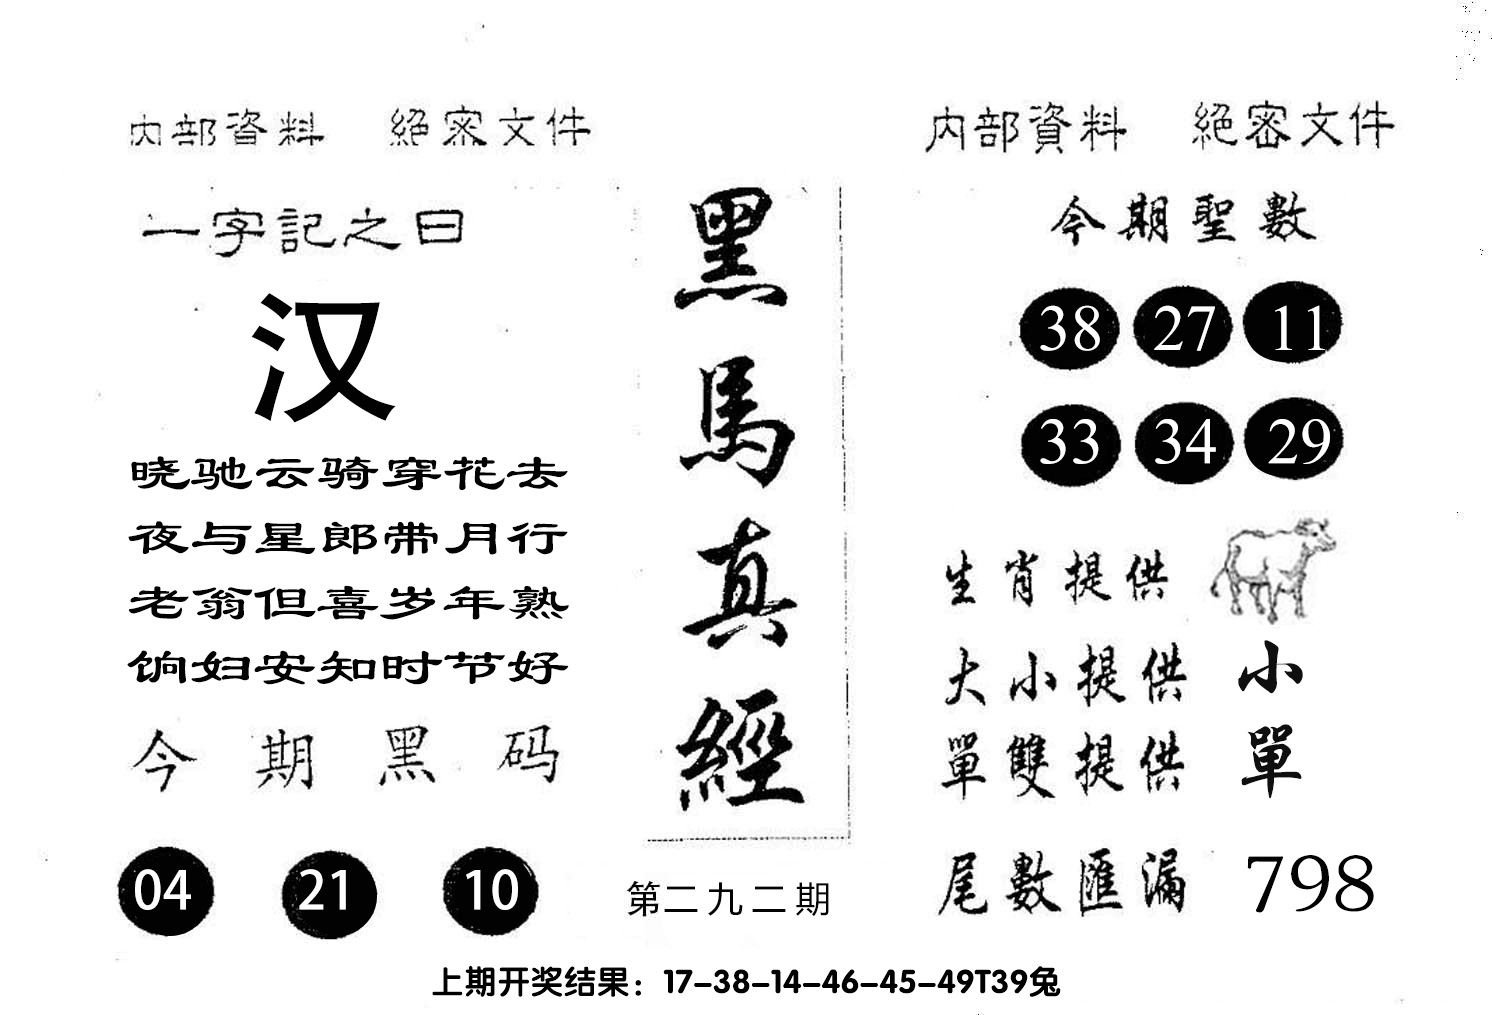 内部資料 絕密文件
一字記之曰
汉
晓驰云骑穿花去
夜与星郎带月行
老翁但喜岁年熟
饷妇安知时节好
今期黑码
04 21 10
黑馬真經
第二九二期
内部資料 絕密文件
今期聖數
38 27 11
33 34 29
生肖提供
大小提供 小
單雙提供 單
尾數匯漏 798
上期开奖结果：17-38-14-46-45-49T39兔